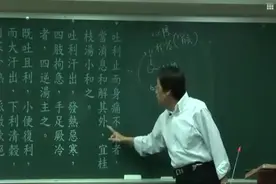 吐利止而身痛不休者
當消息和解其外，宜桂
枝湯小和之。
吐利汗出，發熱惡寒，
四肢拘急，手足厥冷
者，四逆湯主之。
既吐且利，小便復利，
而大汗出，下利清穀，